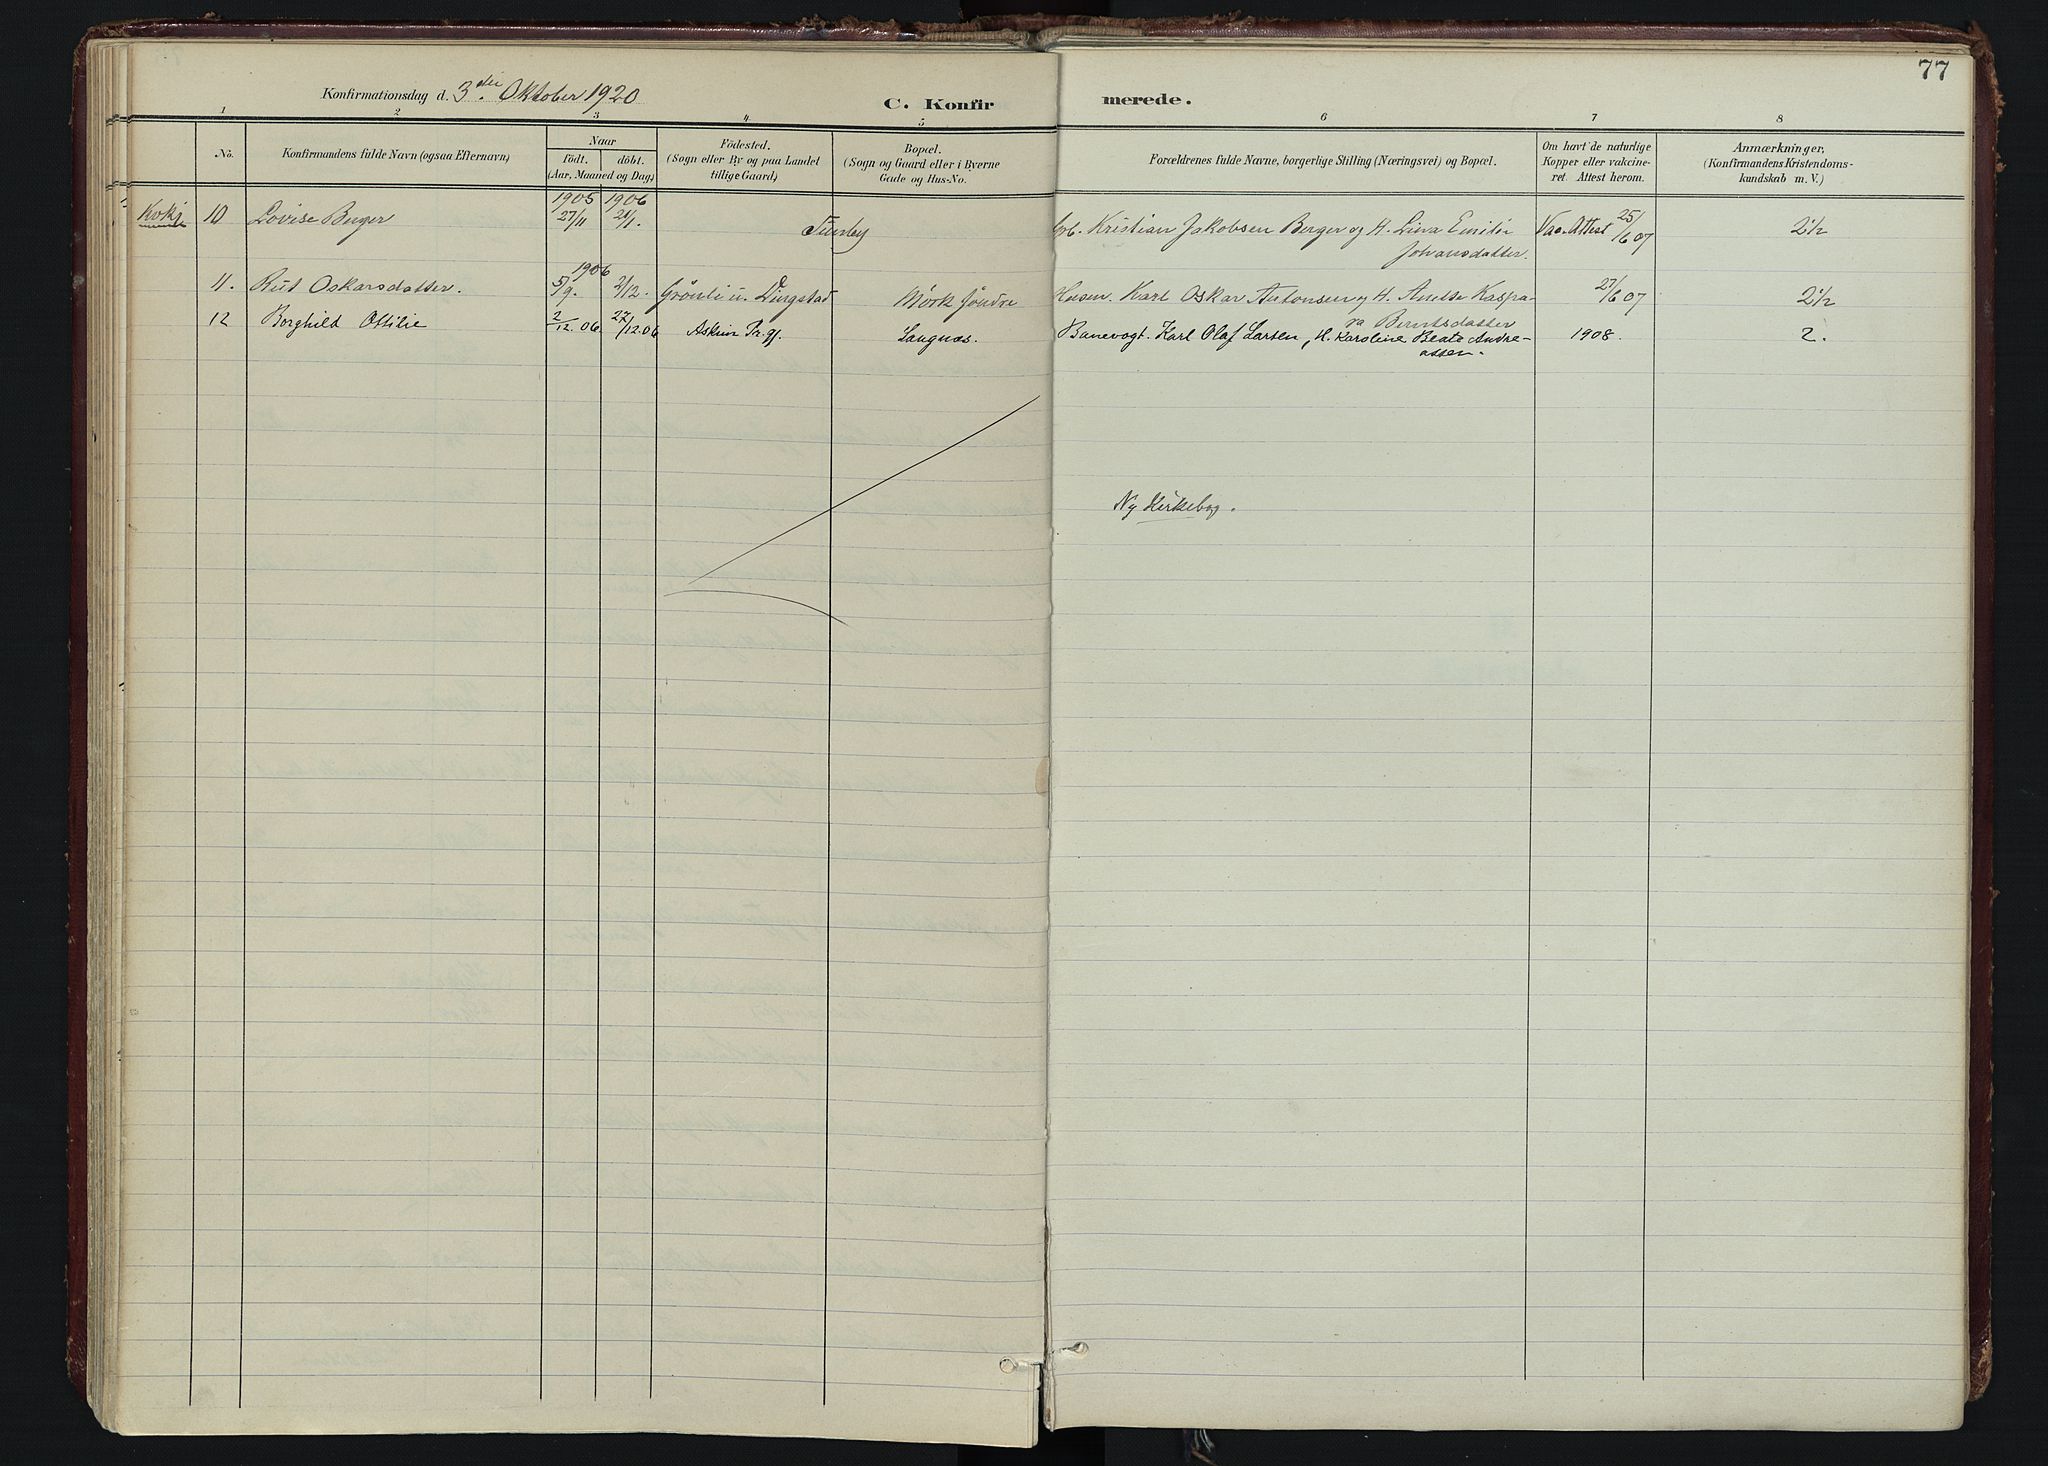 77
Konfirmationsdag d. 3die Oktober 1920
C. Konfirmerede.
1 2 3 4 5 6 7 8
No.
Konfirmandens fulde Navn (ogsaa Efternavn)
Naar
födt. döbt.
(Aar, Maaned og Dag)
Födested.
(Sogn eller By og paa Landet
tillige Gaard)
Bopæl.
(Sogn og Gaard eller i Byerne
Gade og Hus-No.
Forældrenes fulde Navne, borgerlige Stilling (Næringsvei) og Bopæl.
Om havt de naturlige
Kopper eller vakcine-
ret. Attest herom.
Anmærkninger,
(Konfirmandens Kristendoms-
kundskab m. V.)
1905 1906
10 Lovise Berger 27/11 21/1. Finsby Arb. Kristian Jakobsen Berger og H. Lina Emilie Vac. Attest 25/6 07 2½
Johansdatter.
1906
11. Rut Oskarsdatter. 5/9. 2/12. Grönli u. Dingstad Mörk söndre Husm. Karl Oskar Antonsen og H. Anette Kaspa- 27/6 07 2½
ra Berntsdatter
12 Borghild Ottilie 2/12. 06 27/12.06 Askim Pr.gj. Langnes. Banevogt. Karl Olaf Larsen, H. Karoline Beate Andre- 1908. 2.
assen.
Ny Kirkebog.